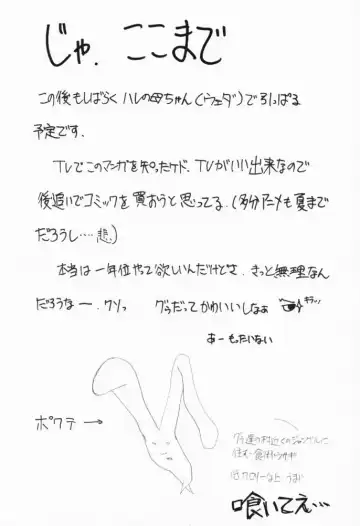 じゃ、ここまで
この後もしばらくハレの母ちゃん(ウェダ)で引っぱる
予定です.
TVでこのマンガを知ったケド、TVがいい出来なので
後追いでコミックを買おうと思ってる.(多分アニメも夏まで
だろうし…悲.)
本当は一年位やって欲しいんだけどさ、きっと無理なん
だろうなー.クソっ グゥだってかわいいしなぁ
あーもったいない
ポクテ→
住む
うまい
喰いてえ…